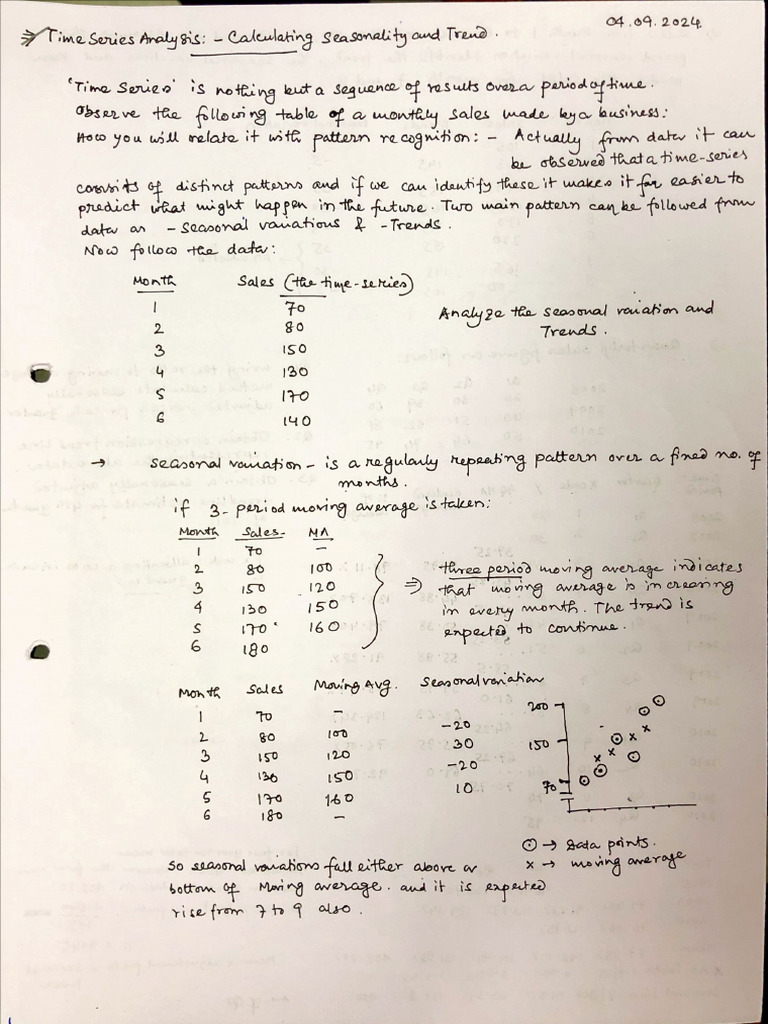 04.09.2024.
Time Series Analysis: - Calculating Seasonality and Trend.
'Time Series' is nothing but a sequence of results over a period of time.
Observe the following table of a monthly sales made by a business:
How you will relate it with pattern recognition: - Actually from data it can
be observed that a time-series
consists of distinct patterns and if we can identify these it makes it far easier to
predict what might happen in the future. Two main pattern can be followed from
data as - seasonal variations & - Trends.
Now follow the data:
Month Sales (the time-series)
1 70
2 80
3 150
4 130
5 170
6 140
Analyze the seasonal variation and
Trends.
→ seasonal variation - is a regularly repeating pattern over a fixed no. of
months.
if 3- period moving average is taken:
Month Sales- MA
1 70 -
2 80 100
3 150 120
4 130 150
5 170 160
6 180
⇒ three period moving average indicates
that moving average is increasing
in every month. The trend is
expected to continue.
Month Sales Moving Avg. Seasonal variation
1 70 -
2 80 100 -20
3 150 120 30
4 130 150 -20
5 170 160 10
6 180 -
200
150
70
⊙ → Data points.
x → moving average
So seasonal variations fall either above or
bottom of Moving average. and it is expected
rise from 7 to 9 also.